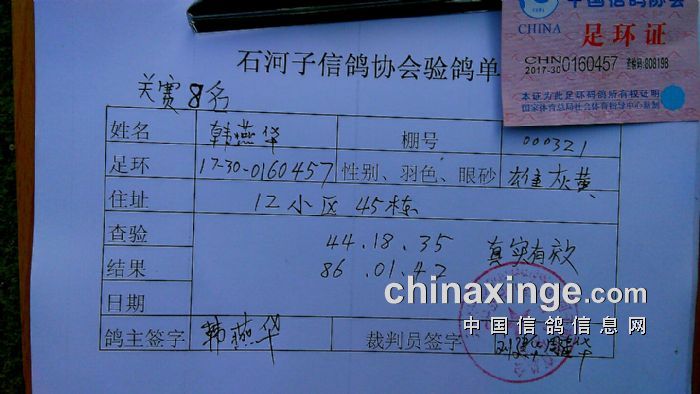 中国信鸽协会
CHINA
足环证
CHN
2017-30 0160457 查验码:808198
本证为此足环码鸽所有权证明
国家体育总局社会体育指导中心监制
石河子信鸽协会验鸽单
关赛8名
姓名 韩燕华 棚号 000321
足环 17-30-0160457 性别、羽色、眼砂 雄灰黄
住址 12小区45栋
查验 44.18.35 真实有效
结果 86.01.42
日期
鸽主签字 韩燕华 裁判员签字
chinaxinge.com
中国信鸽信息网